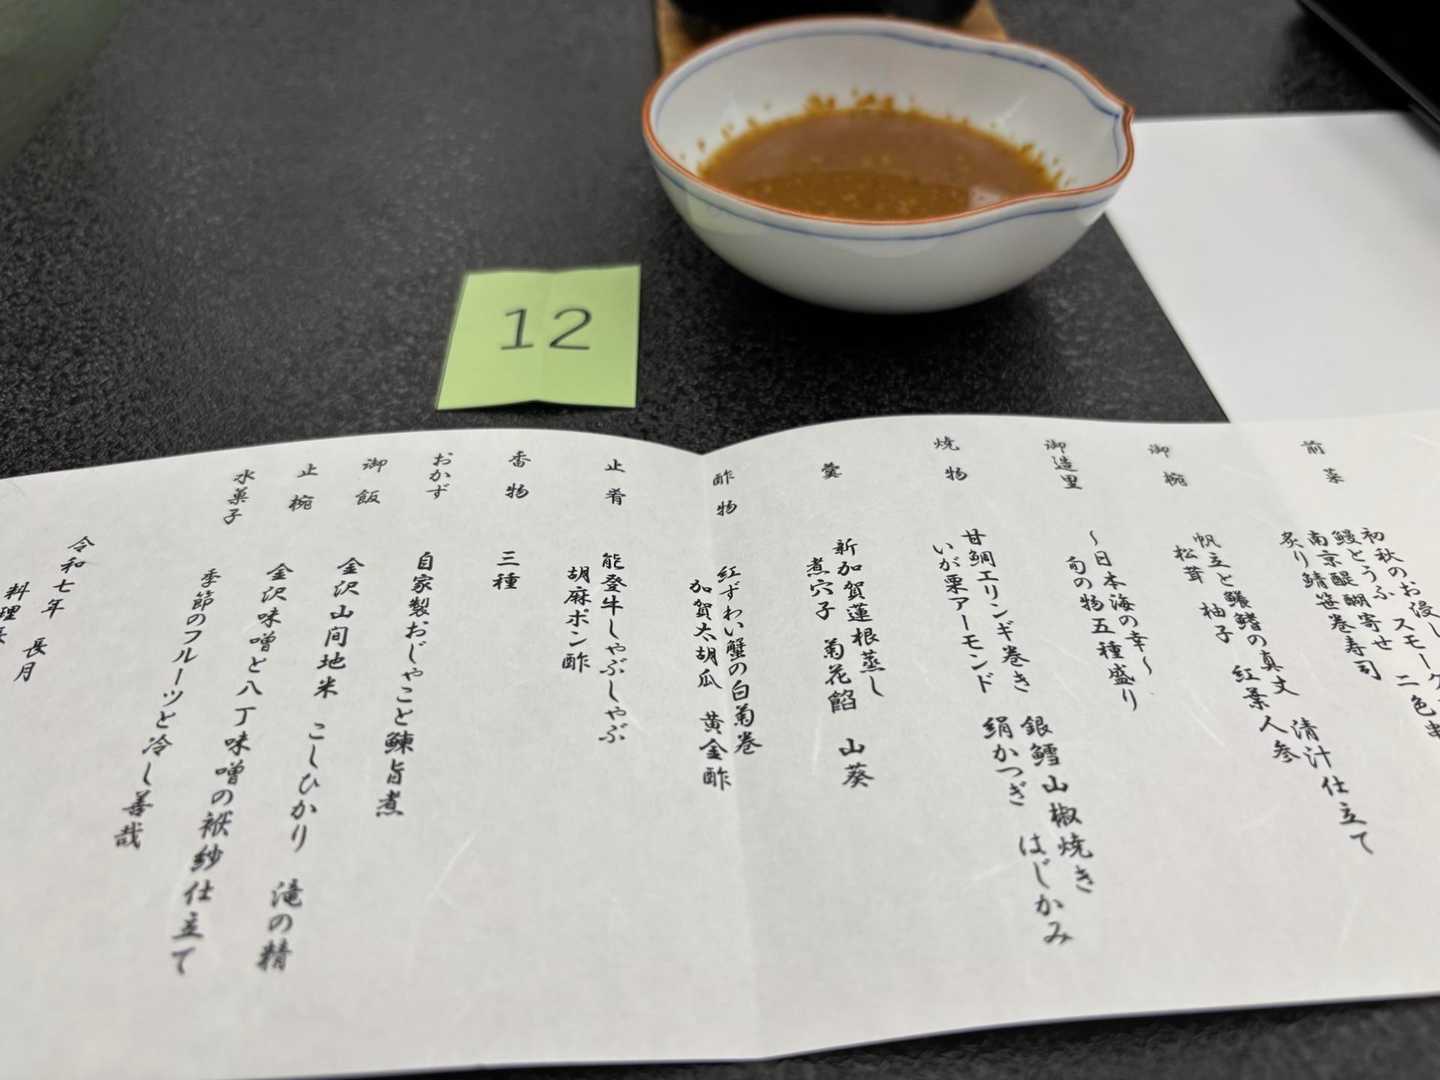 12
前菜
初秋のお浸し
鰻とうふ スモーク
南京醍醐寄せ 二色串
炙り鯖笹巻寿司
御椀
帆立と鱶鰭の真丈 清汁仕立て
松茸 柚子 紅葉人参
御造里
〜日本海の幸〜
旬の物五種盛り
焼物
甘鯛エリンギ巻き 銀鱈山椒焼き
いが栗アーモンド 絹かつぎ はじかみ
羹
新加賀蓮根蒸し
煮穴子 菊花餡 山葵
酢物
紅ずわい蟹の白菊巻
加賀太胡瓜 黄金酢
止肴
能登牛しゃぶしゃぶ
胡麻ポン酢
香物
三種
おかず
自家製おじゃこと鰊旨煮
御飯
金沢山間地米 こしひかり 滝の精
止椀
金沢味噌と八丁味噌の袱紗仕立て
水菓子
季節のフルーツと冷し善哉
令和七年 長月
料理長